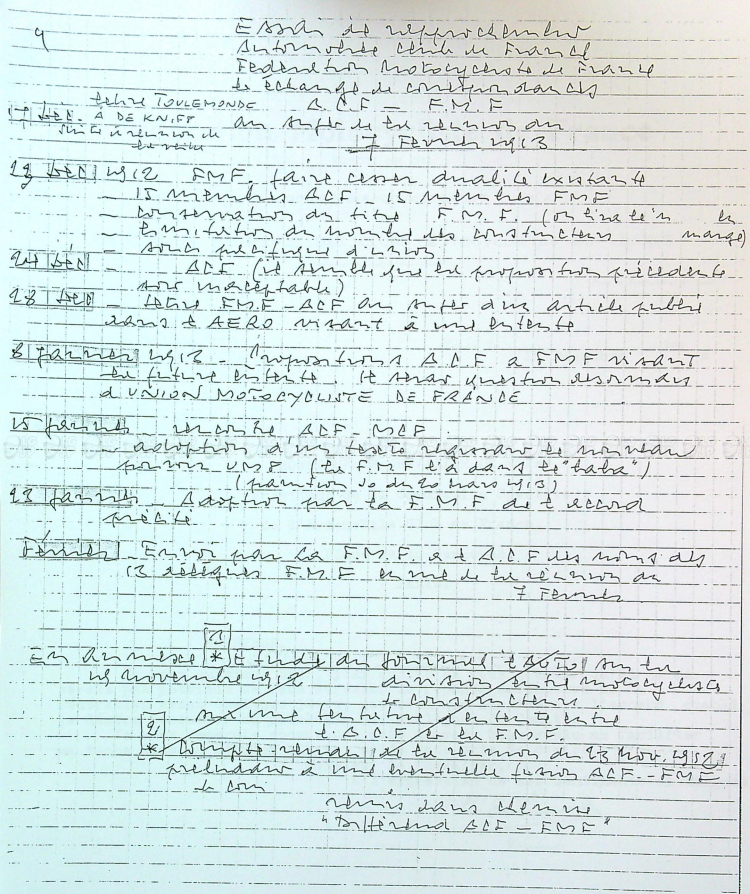 9
Essai de rapprochement
Automobile Club de France
Federation Motocycliste de France
échange de correspondances
lettre TOULEMONDE A.C.F - F.M.F
17 Déc. A DE KNIFF au sujet de la réunion du
suite à réunion de 7 Février 1913
la veille
1912 FMF. faire cesser dualité existante
- 15 membres ACF - 15 membres FMF
- conservation du titre F.M.F. (on lira en
- limitation du nombre des constructeurs marge)
- sous d'union
24 Déc - ACF (il semble que la proposition précédente
soit inacceptable)
28 Déc - lettre FMF - ACF au sujet d'un article publié
dans l AERO visant à une entente
8 Janvier 1913 - Propositions A.C.F a FMF visant
la future entente. Il serait question désormais
d UNION MOTOCYCLISTE DE FRANCE
15 Janvier - rencontre ACF - MCF
- adoption d'un texte régissant le nouveau
pouvoir UMF (la F.M.F l'a dans le "baba")
(parution du 20 mars 1913)
23 Janvier - Adoption par la F.M.F de l accord
précité
Février - Envoi par la F.M.F. a l A.C.F des noms des
13 délégués F.M.F en vue de la réunion du
7 Février
1
En annexe * Etude du journal l AUTO sur la
19 novembre 1912 division entre motocyclistes
constructeurs.
2 une tentative d entente entre
l A.C.F la F.M.F.
* Compte rendu de la réunion du 23 Nov. 1912
préludant à une éventuelle fusion ACF - FMF
remis dans chemise
"Différend ACF - FMF"